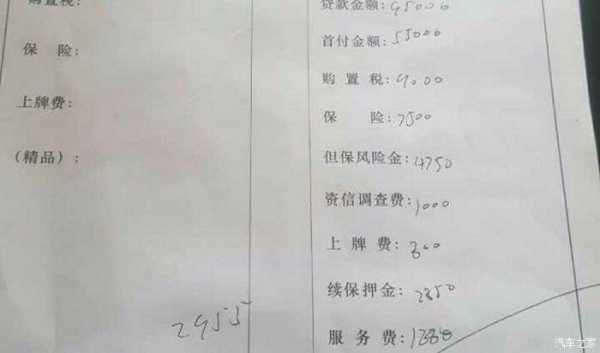 购置税:
保 险:
上牌费:
(精品):
2955
贷款金额:95000
首付金额:55000
购 置 税:9000
保 险:7500
但保风险金:4750
资信调查费:1000
上 牌 费:300
续保押金:2850
服 务 费:1380
汽车之家